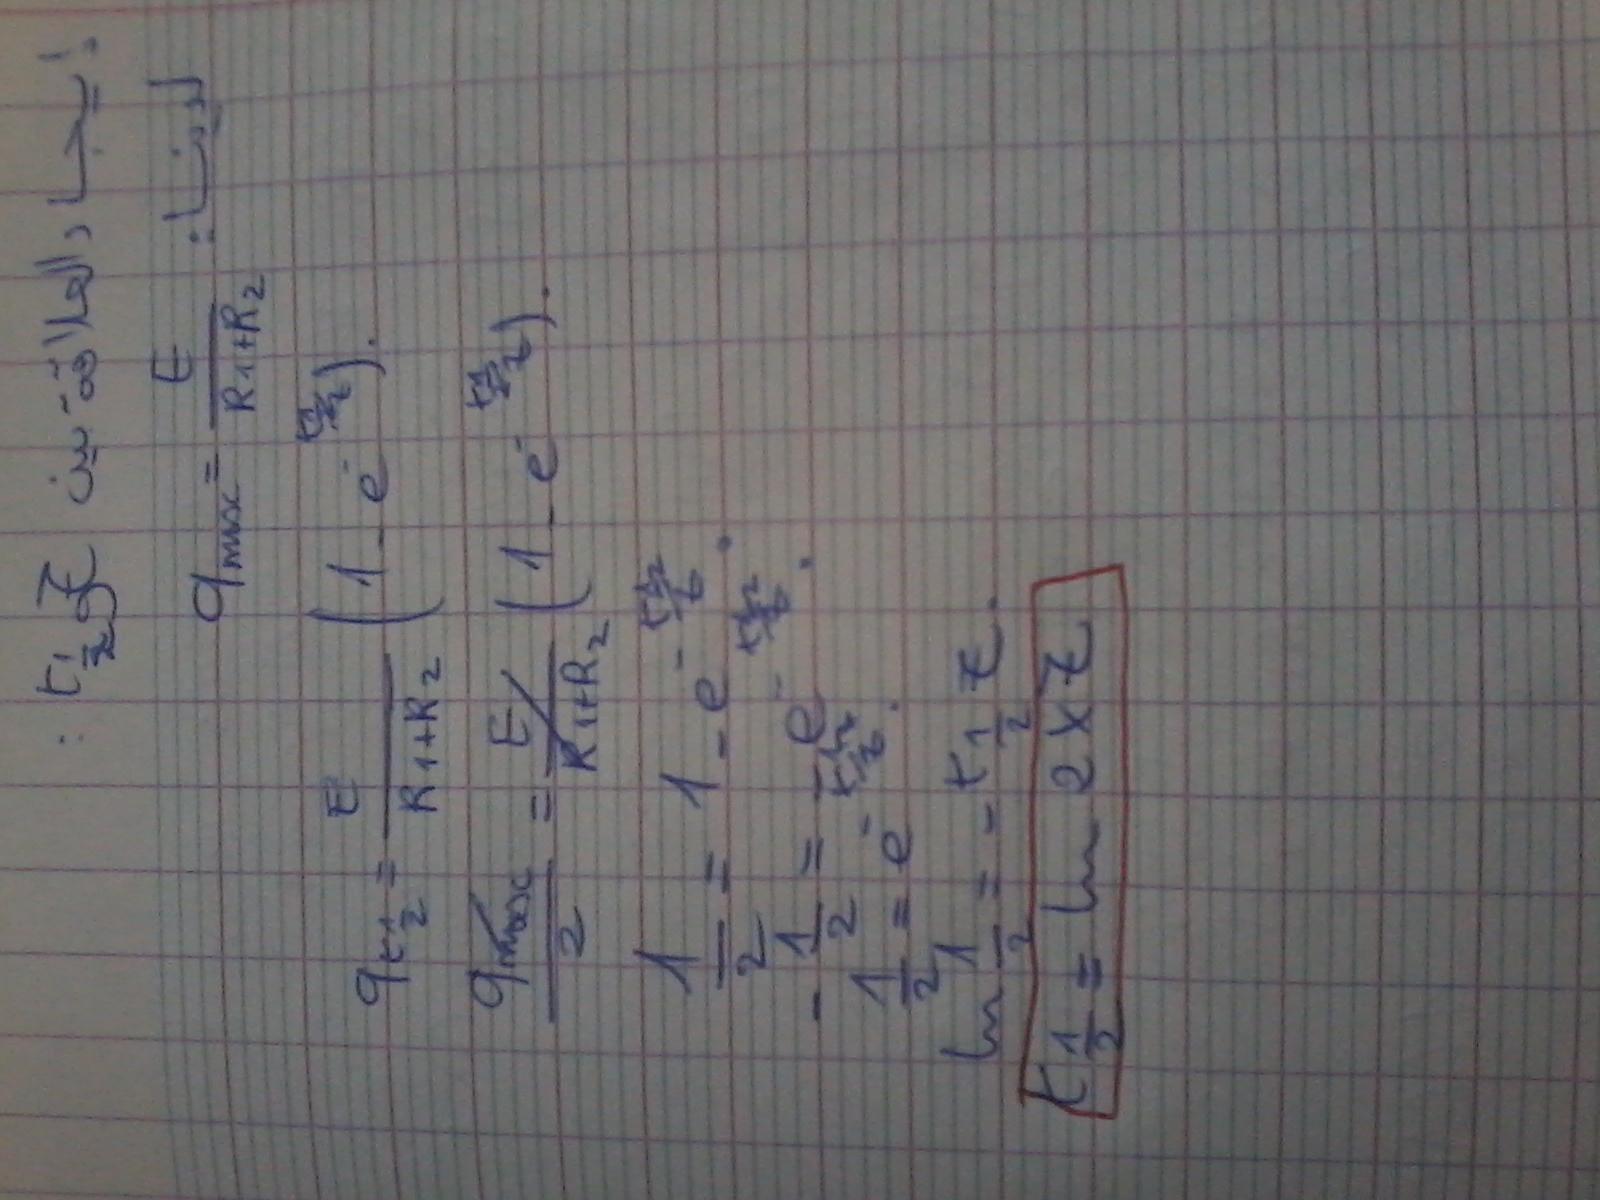 إيجاد العلاقة بين τ و t½ :
لدينا : qmax = E/(R1+R2)
qt½ = E/(R1+R2) (1 - e^-t½/τ).
qmax/2 = E/(R1+R2) (1 - e^-t½/τ).
1/2 = 1 - e^-t½/τ.
-1/2 = -e^-t½/τ.
1/2 = e^-t½/τ.
ln 1/2 = - t½ τ.
t½ = ln 2 x τ